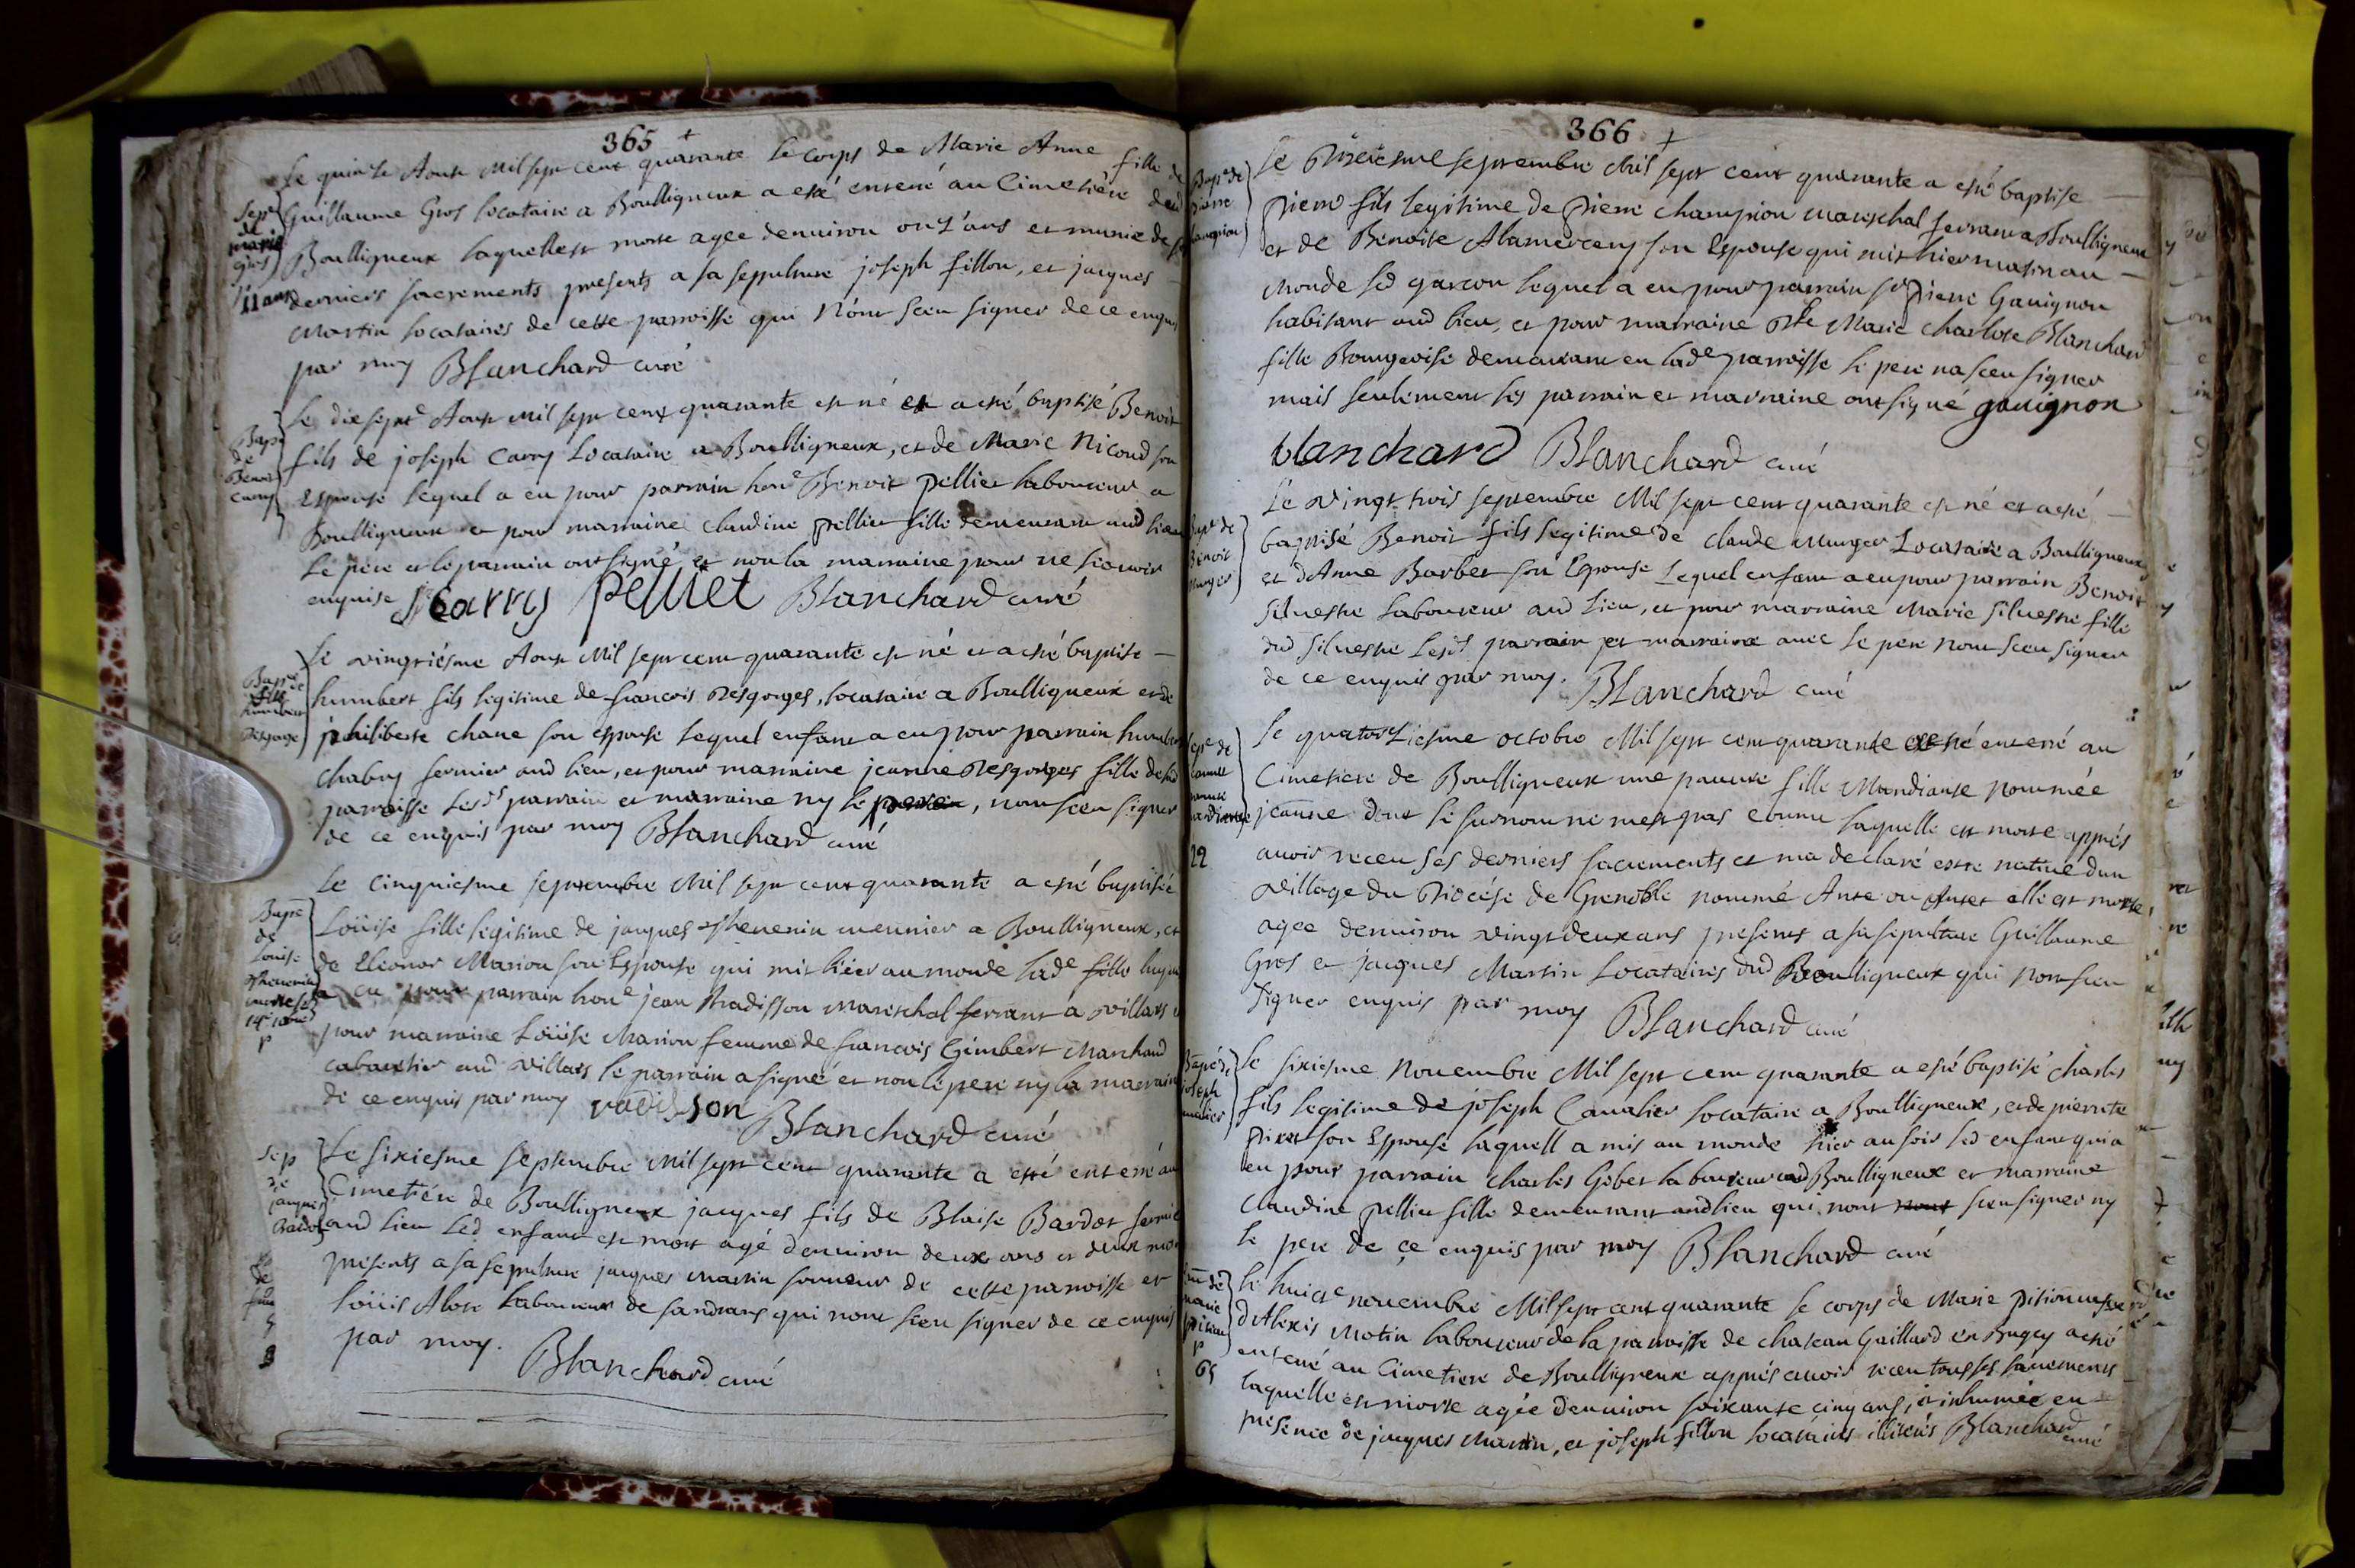 365 +
Le quinze Aoust Mil sept cent quarante le corps de Marie Anne fille de
Guillaume Gros locataire a Boulligneux a esté enterré au Cimetière dud
Boulligneux laquelle est morte agee denuiron onze ans et munie de ses
derniers sacrements presents a sa sepulture joseph fillon, et jacques
Martin locataires de cette parroisse qui n'ont sceu signer de ce enquis
par moy Blanchard curé
Sepe
de
marie
gros
11 ans
Le dix sept Aoust Mil sept cent quarante est né et a esté baptisé Benoit
fils de joseph Carry Locataire a Boulligneux, et de Marie Nicoud son
Espouse lequel a eu pour parrain hone Benoit Pellier laboureur a
Boulligneux et pour marraine Claudine pellier fille demeurant aud lieu
Le père et le parrain ont signé et non la marraine pour ne scavoir
enquise J Carry pelliet Blanchard curé
Bape
de
Benoit
Carry
Le vingtiésme Aoust Mil sept cent quarante est né et a esté baptisé
humbert fils legitime de francois Desgorges, locataire a Boulligneux et de
philiberte chane son espouse lequel enfant a eu pour parrain humbert
Chabry fermier aud lieu, et pour marraine jeanne Desgorges fille de lad
parroisse lesds parrain et marraine ny le , nont sceu signer
de ce enquis par moy Blanchard curé
Bape de
humbert
Desgorge
Le Cinquiesme septembre Mil sept cent quarante a esté baptisée
Loüise fille legitime de jacques Thevenin meunier a Boulligneux, et
de Eleonor Marion son Espouse qui mit hier au monde lade fille laquelle
a eu pour parrain hone jean Radisson Mareschal ferrant a Villars et
pour marraine Loüise Marion femme de francois Gimbert Marchand
cabaretier aud Villars le parrain a signé et non le pere ny la marraine
de ce enquis par moy radisson Blanchard curé
Bape
de
Louise
Thevenin
Le sixiesme septembre Mil sept cent quarante a esté enterré au
Cimetiére de Boulligneux jacques fils de Blaise Bardet fermier
aud lieu led enfant est mort agé denuiron deux ans et deux mois
presents a sa sepulture jacques Martin sonneur de cette paroisse et
Loüis Alose Laboureur de sandrans qui nont sceu signer de ce enquis
par moy.
Blanchard curé
Sep
de
jacques
Bardet
366 +
Le Dixiesme septembre Mil sept cent quarante a esté baptise
Pierre fils legitime de Pierre Champion mareschal ferrant a Boulligneux
et de Benoite Alamercery son Espouse qui mit hier matin au
Monde led garcon lequel a eu pour parrain sr Pierre Gauignon
habitant aud lieu, et pour marraine Dlle Marie charlote Blanchard
fille Bourgeoise demeurant en lade parroisse le pere na sceu signer
mais seulement les parrain et marraine ont signé gauignon
blanchard Blanchard curé
Bape de
Pierre
Champion
Le Vingt trois septembre Mil sept cent quarante est né et a esté
baptisé Benoit fils legitime de Claude Munger Locataire a Boulligneux
et dAnne Barbet son Espouse Lequel enfant a eu pour parrain Benoit
Siluestre Laboureur aud Lieu, et pour marraine Marie Siluestre fille
dud Siluestre Lesds parrain et marraine avec le pere nont sceu signer
de ce enquis par moy. Blanchard curé
Bape de
Benoit
Munger
Le quatorziesme octobre Mil sept cent quarante a esté enterré au
Cimetiere de Boulligneux une pauure fille Mandiante nommée
jeanne dont le surnom ne mest pas connu laquelle est morte apprés
auoir receu ses derniers sacrements et ma declaré estre natiue dun
village du Diocése de Grenoble nommé Ante ou Antet elle est morte
agee denuiron vingt deux ans presents a sa sepulture Guillaume
Gros et jacques Martin Locataires dud Boulligneux qui nont sceu
signer enquis par moy Blanchard curé
22
Le sixiesme Nouembre Mil sept cent quarante a esté baptisé Charles
fils legitime de joseph Caualier locataire a Boulligneux, et de pierrete
son Espouse laquell a mis au monde hier au soir led enfant qui a
eu pour parrain Charles Gobet laboureur aud Boulligneux et marraine
Claudine pellier fille demeurant aud lieu qui nont nont sceu signer ny
le pere de ce enquis par moy Blanchard curé
Bape de
joseph
Caualier
Le huicte nouembre Mil sept cent quarante le corps de Marie pition
dAlexis Motin laboureur de la paroisse de chateau Gaillard en Bugey a esté
enterré au Cimetiere de Boulligneux apprés auoir receu tous ses sacrements
laquelle est morte agée denuiron soixante cinq ans, et inhumée en
presence de jacques Martin, et joseph fillon locataires illiterés Blanchard
curé
marie
pition
65